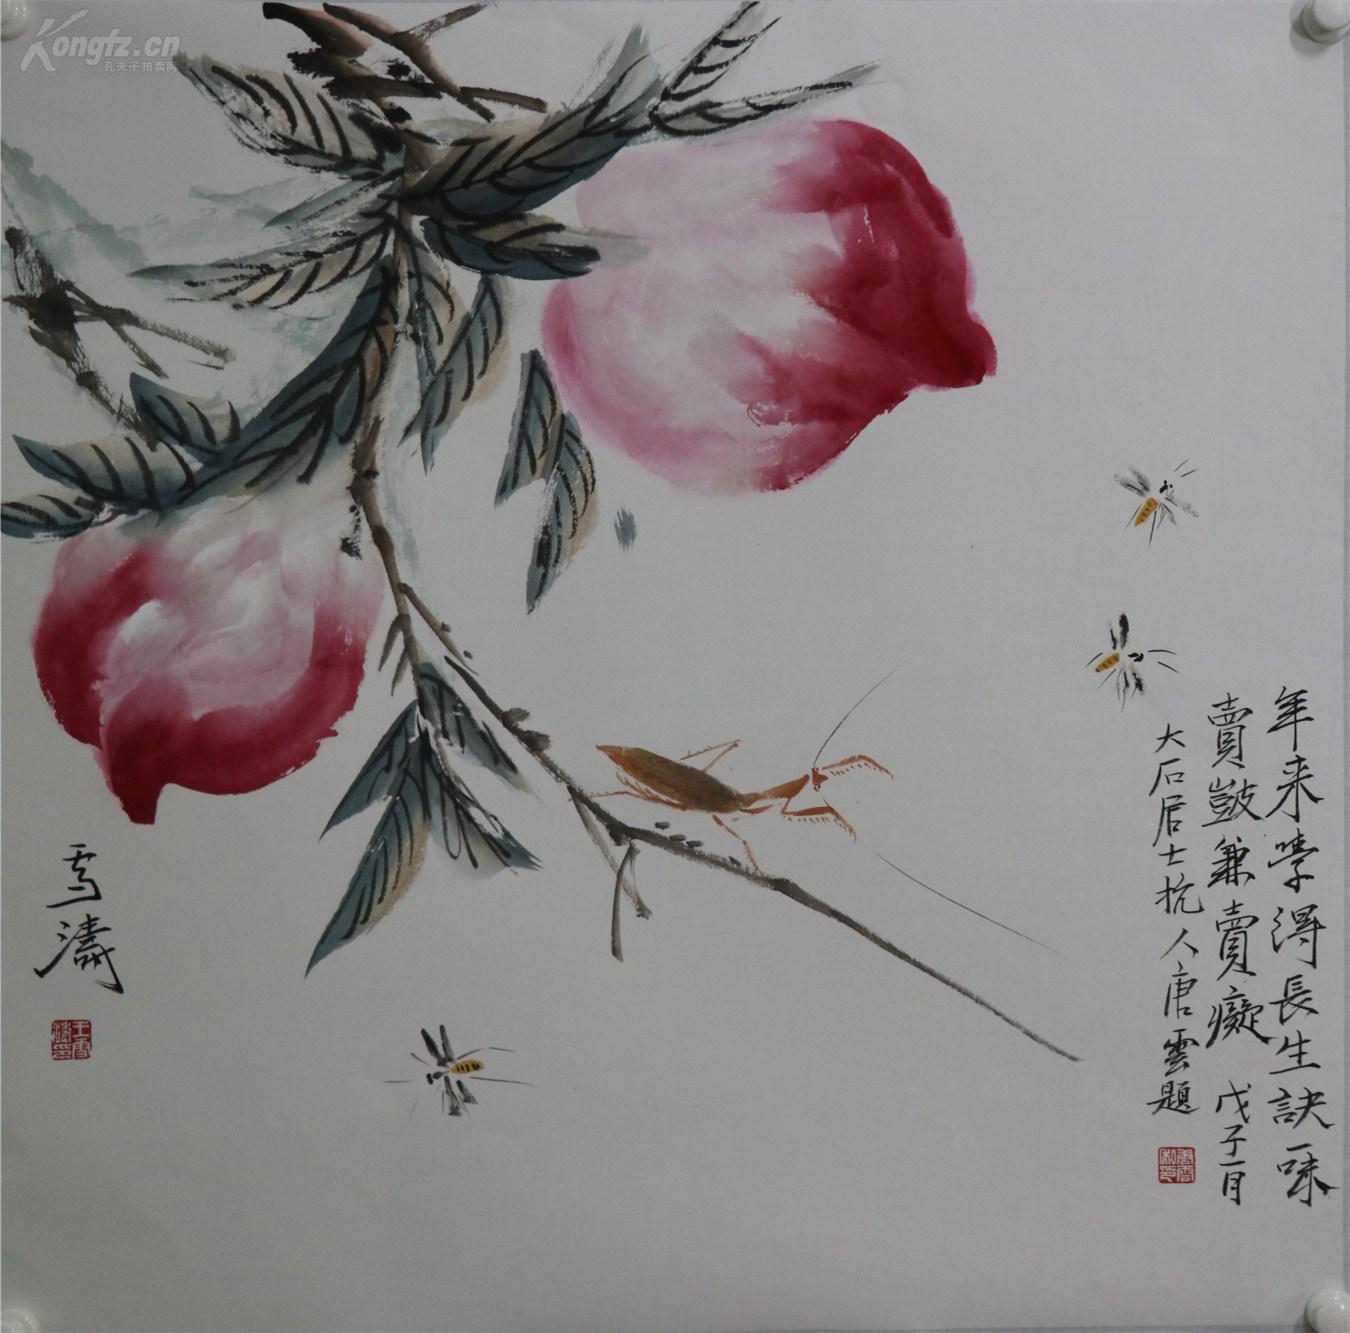 Kongfz.cn
孔夫子拍卖网
年来学得長生訣一味
賣獃兼賣癡 戊子一月
大石居士杭人唐雲題
雪濤
王雪濤印
唐雲私印